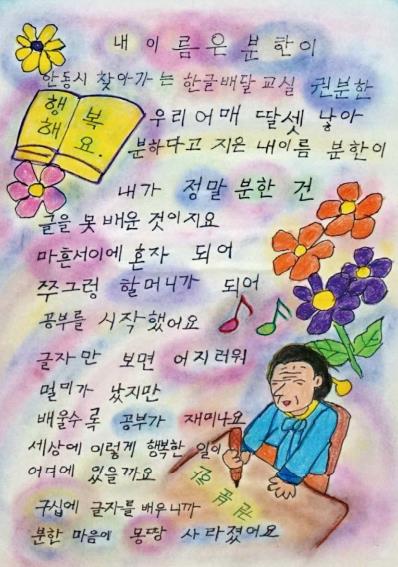 내 이름은 분한이
안동시 찾아가는 한글배달교실 권분한
행복
해요.
우리 어매 딸셋 낳아
분하다고 지은 내이름 분한이
내가 정말 분한 건
글을 못 배운 것이지요
마흔서이에 혼자 되어
쭈그렁 할머니가 되어
공부를 시작했어요
글자만 보면 어지러워
멀미가 났지만
배울수록 공부가 재미나요
세상에 이렇게 행복한 일이
어디에 있을까요
구십에 글자를 배우니까
분한 마음이 몽땅 사라졌어요